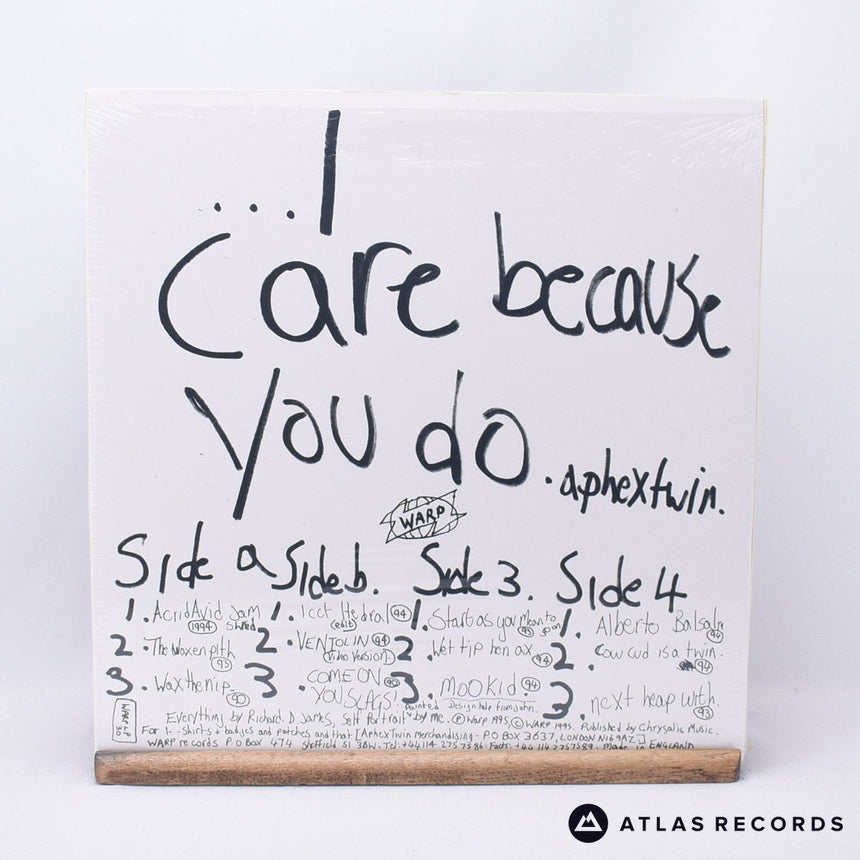 ...I
Care because
you do.
.aphextwin.
WARP
Side a
1. AcridAvid Jam Shred 1994
2. The Waxen pith 93
3. Wax the nip. 90
Side b.
1. Icct Hedral (edit) 94
2. VENTOLIN 94 (Video Version)
3. COME ON YOU SLAGS! 90
Side 3.
1. Start as you Mean to go on 93
2. Wet tip hen ax 94
3. MOOKid. 94
Side 4
1. Alberto Balsalm 94
2. Cow cud is a twin. 94
3. next heap with. 93
WARP LP 30
Painted Design help from John.
Everything by Richard. D. James, Self Portrait by me. ℗ Warp 1995, © WARP 1995. Published by Chrysalis Music.
For T-Shirts + badges and patches and that [AphexTwin merchandising - P.O BOX 3637, LONDON N16 9AZ]
WARP records P.O Box 474 Sheffield S1 3BW. Tel +44 114 275 7586: Facs: +44 114 2757589. Made in ENGLAND
ATLAS RECORDS